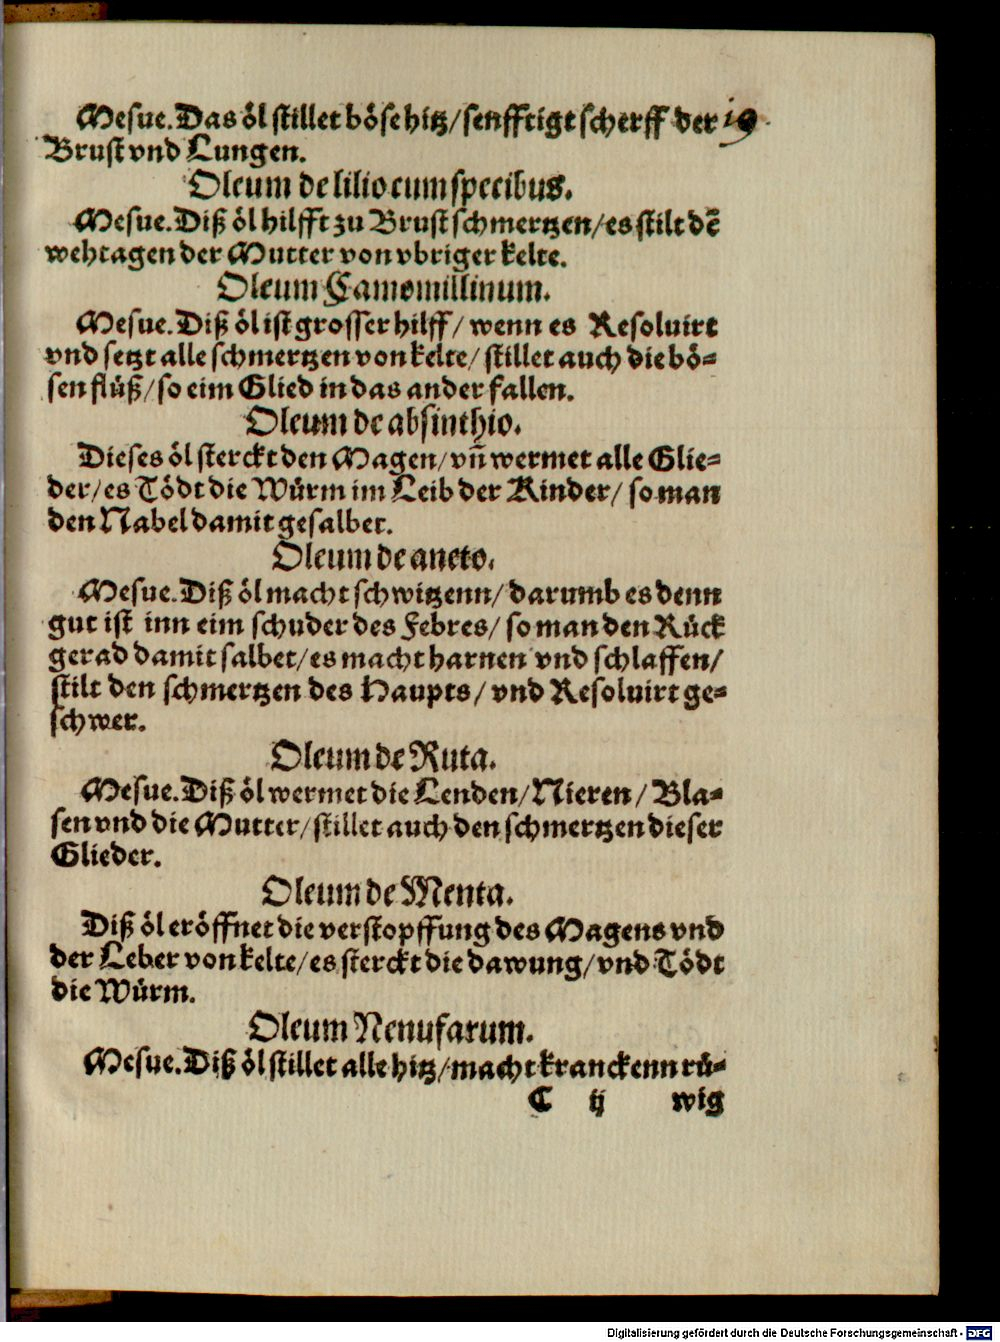 Mesue. Das öl stillet böse hitz/senfftigt scherff der 19
Brust vnd Lungen.
Oleum de lilio cum specibus.
Mesue. Diß öl hilfft zu Brust schmertzen/es stilt dē
wehtagen der Mutter von vbriger kelte.
Oleum Camomillinum.
Mesue. Diß öl ist grosser hilff/ wenn es Resoluirt
vnd setzt alle schmertzen von kelte/ stillet auch die bö-
sen flüß/so eim Glied in das ander fallen.
Oleum de absinthio.
Dieses öl sterckt den Magen/vn̄ wermet alle Glie-
der/es Tödt die Würm im Leib der Kinder/ so man
den Nabel damit gesalbet.
Oleum de aneto.
Mesue. Diß öl macht schwitzenn/darumb es denn
gut ist inn eim schuder des Febres/ so man den Rück
gerad damit salbet/es macht harnen vnd schlaffen/
stilt den schmertzen des Haupts/ vnd Resoluirt ge-
schwer.
Oleum de Ruta.
Mesue. Diß öl wermet die Lenden/Nieren/ Bla-
sen vnd die Mutter/stillet auch den schmertzen dieser
Glieder.
Oleum de Menta.
Diß öl eröffnet die verstopffung des Magens vnd
der Leber von kelte/es sterckt die dawung/vnd Tödt
die Würm.
Oleum Nenufarum.
Mesue. Diß öl stillet alle hitz/macht kranckenn rü-
C ij wig
Digitalisierung gefördert durch die Deutsche Forschungsgemeinschaft - DFG